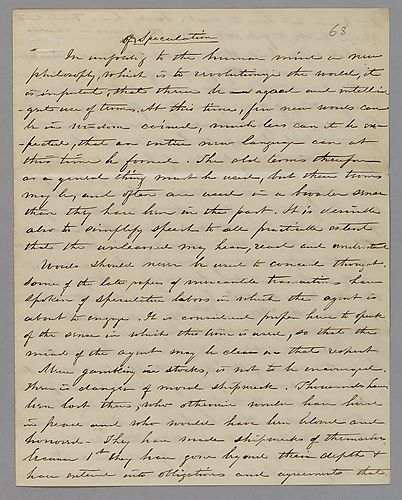 of Speculation
68
In unfolding to the human mind a new
philosophy, which is to revolutionize the world, it
is expected, that there be a good and intelli-
-gent use of terms. At this time, few new words can
be in wisdom coined, much less can it be ex-
-pected, that an entire new language can at
this time be formed. The old terms therefore
as a general thing must be used, but these terms
may be, and often are used in a broader sense
than they have been in the past. It is desirable
also to simplify speech to all practicable extent
that the unlearned may hear, read and understand
Words should never be used to conceal thought.
Some of the late papers of mercantile transactions have
spoken of speculative labors in which the agent is
about to engage. It is considered proper here to speak
of the sense in which this term is used, so that the
mind of the agent may be clear in that respect
Mere gambling in stocks, is not to be encouraged.
There is danger of moral shipwreck. Thousands have
been lost there, who otherwise would have lived
in peace and who would have been loved and
honored – They have made shipwrecks of themselves
because 1st they have gone beyond their depths &
have entered into obligations and agreements that